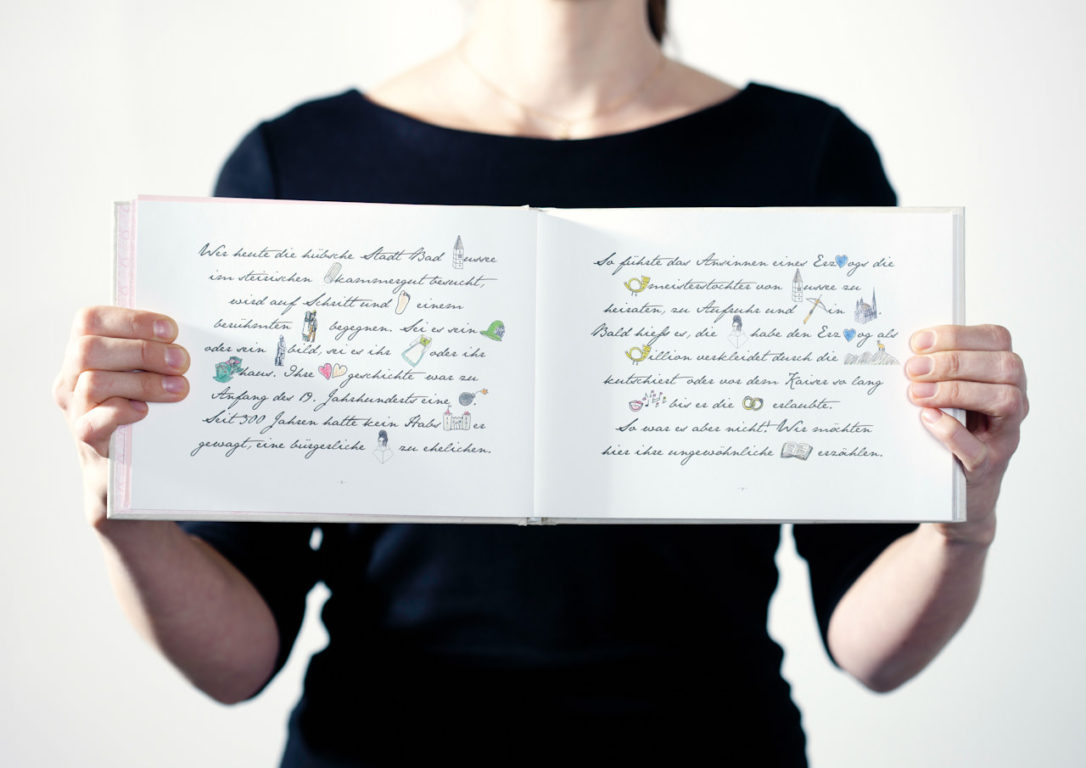 Wer heute die hübsche Stadt Bad ussee
im steirischen kammergut besucht,
wird auf Schritt und einem
berühmten begegnen. Sei es sein
oder sein bild, sei es ihr oder ihr
haus. Ihre geschichte war zu
Anfang des 19. Jahrhunderts eine .
Seit 300 Jahren hatte kein Habs er
gewagt, eine bürgerliche zu ehelichen.
So führte das Ansinnen eines Erz ogs die
meisterstochter von ussee zu
heiraten, zu Aufruhr und in .
Bald hieß es, die habe den Erz og als
illion verkleidet durch die
kutschiert oder vor dem Kaiser so lang
bis er die erlaubte.
So war es aber nicht! Wir möchten
hier ihre ungewöhnliche erzählen.